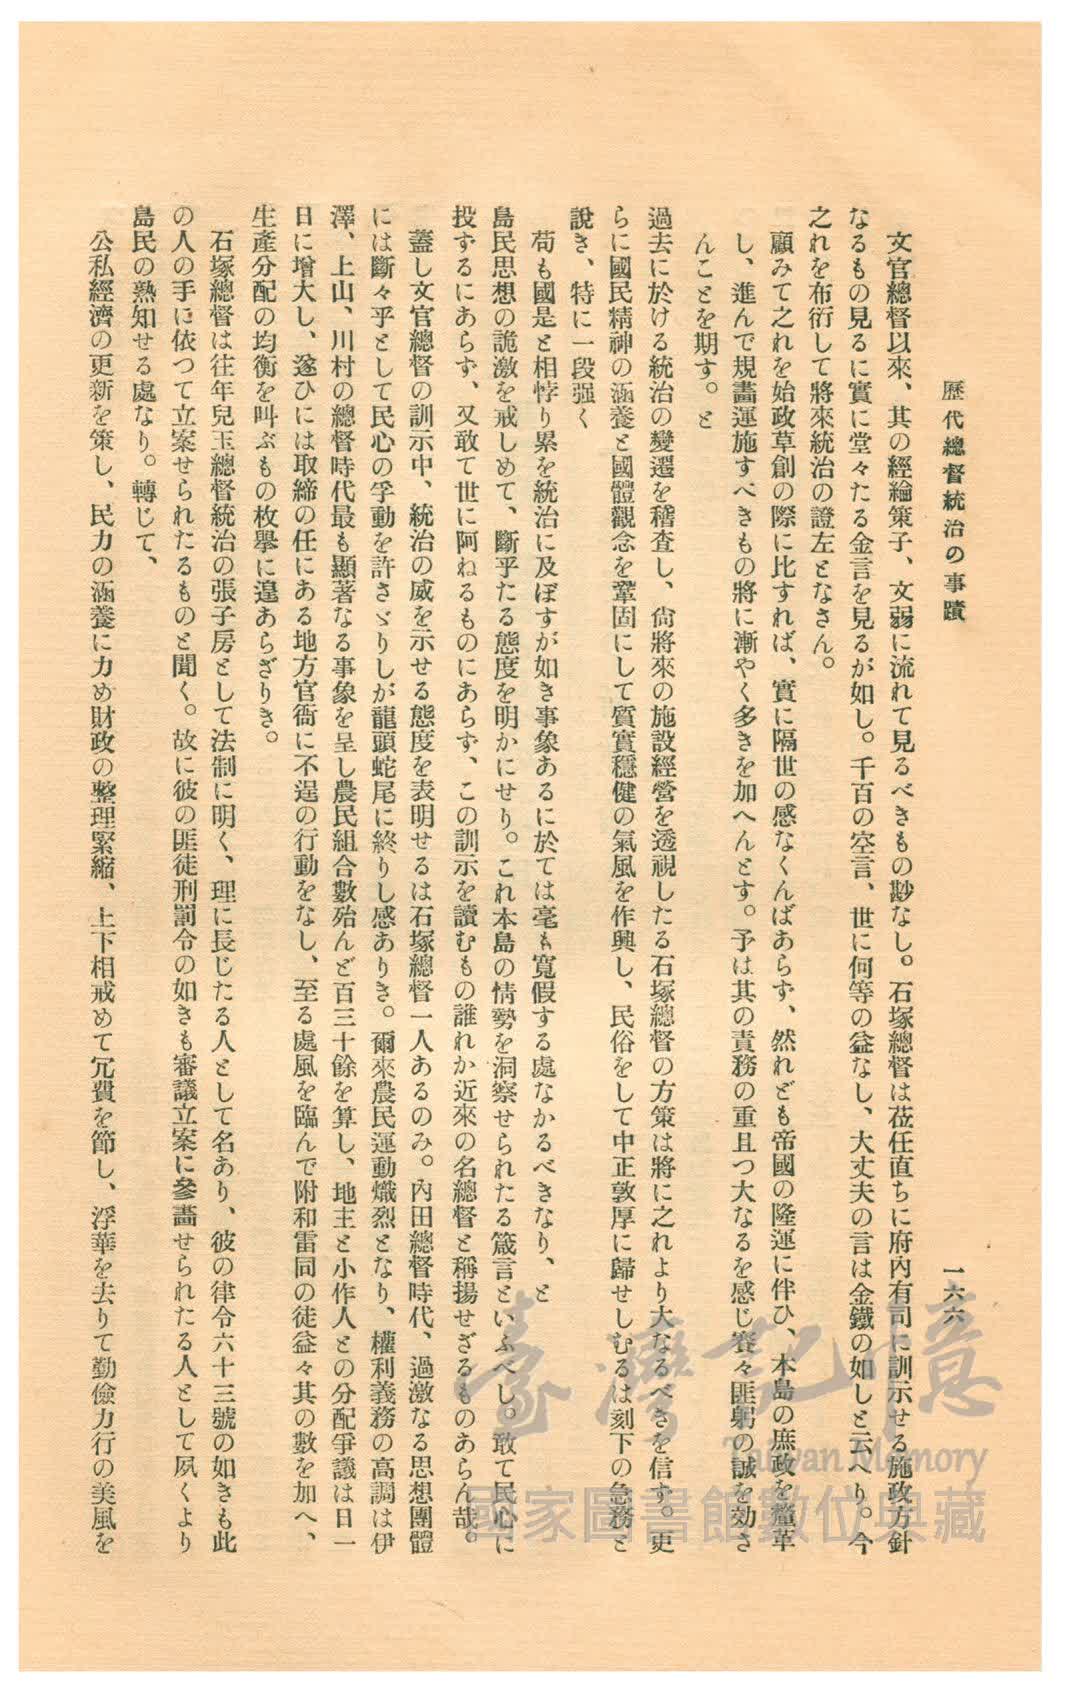 歷代總督統治の事蹟
一六六
文官總督以來、其の經綸策子、文弱に流れて見るべきもの尠なし。石塚總督は莅任直ちに府內有司に訓示せる施政方針
なるもの見るに實に堂々たる金言を見るが如し。千百の空言、世に何等の益なし、大丈夫の言は金鐵の如しと云へり。今
之れを布衍して將來統治の證左となさん。
顧みて之れを始政草創の際に比すれば、實に隔世の感なくんばあらず、然れども帝國の隆運に伴ひ、本島の庶政を釐革
し、進んで規畫運施すべきもの將に漸やく多きを加へんとす。予は其の責務の重且つ大なるを感じ賽々匪躬の誠を効さ
んことを期す。と
過去に於ける統治の變遷を稽査し、尙將來の施設經營を透視したる石塚總督の方策は將に之れより大なるべきを信す。更
らに國民精神の涵養と國體觀念を鞏固にして質實穩健の氣風を作興し、民俗をして中正敦厚に歸せしむるは刻下の急務と
說き、特に一段强く
苟も國是と相悖り累を統治に及ぼすが如き事象あるに於ては毫も寬假する處なかるべきなり、と
島民思想の詭激を戒しめて、斷乎たる態度を明かにせり。これ本島の情勢を洞察せられたる箴言といふべし。敢て民心に
投ずるにあらず、又敢て世に阿ねるものにあらず、この訓示を讀むもの誰れか近來の名總督と稱揚せざるものあらん哉。
蓋し文官總督の訓示中、統治の威を示せる態度を表明せるは石塚總督一人あるのみ。內田總督時代、過激なる思想團體
には斷々乎として民心の孚動を許さゞりしが龍頭蛇尾に終りし感ありき。爾來農民運動熾烈となり、權利義務の高調は伊
澤、上山、川村の總督時代最も顯著なる事象を呈し農民組合數殆んど百三十餘を算し、地主と小作人との分配爭議は日一
日に增大し、遂ひには取締の任にある地方官衙に不逞の行動をなし、至る處風を臨んで附和雷同の徒益々其の數を加へ、
生產分配の均衡を叫ぶもの枚擧に遑あらざりき。
石塚總督は往年兒玉總督統治の張子房として法制に明く、理に長じたる人として名あり、彼の律令六十三號の如きも此
の人の手に依つて立案せられたるものと聞く。故に彼の匪徒刑罰令の如きも審議立案に參畵せられたる人として夙くより
島民の熟知せる處なり。轉じて、
公私經濟の更新を策し、民力の涵養に力め財政の整理緊縮、上下相戒めて冗費を節し、浮華を去りて勤儉力行の美風を
臺灣記憶
Taiwan Memory
國家圖書館數位典藏